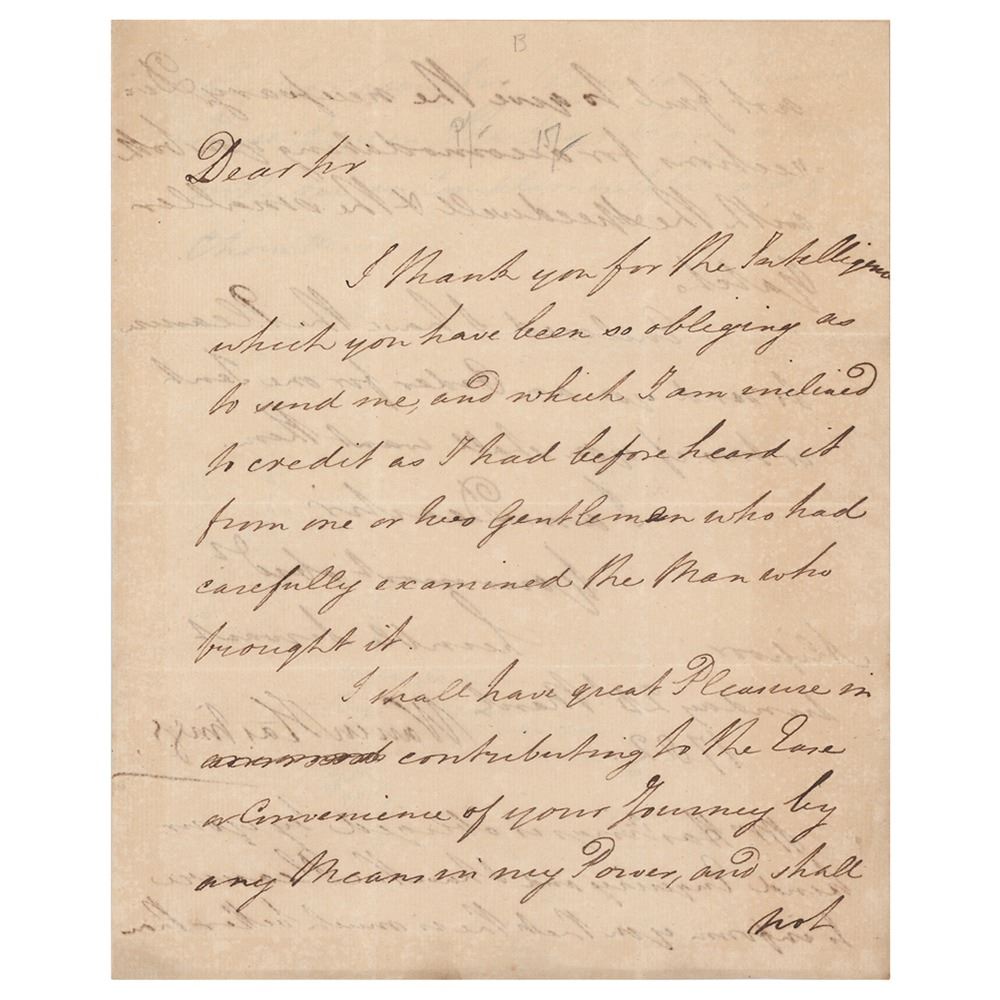 B
Dear Sir
I thank you for the Intelligence
which you have been so obleging as
to send me, and which I am inclined
to credit as I had before heard it
from one or two Gentlemen who had
carefully examined the Man who
brought it.
I shall have great Pleasure in
contributing to the Ease
or Convenience of your Journey by
any Means in my Power, and shall
not